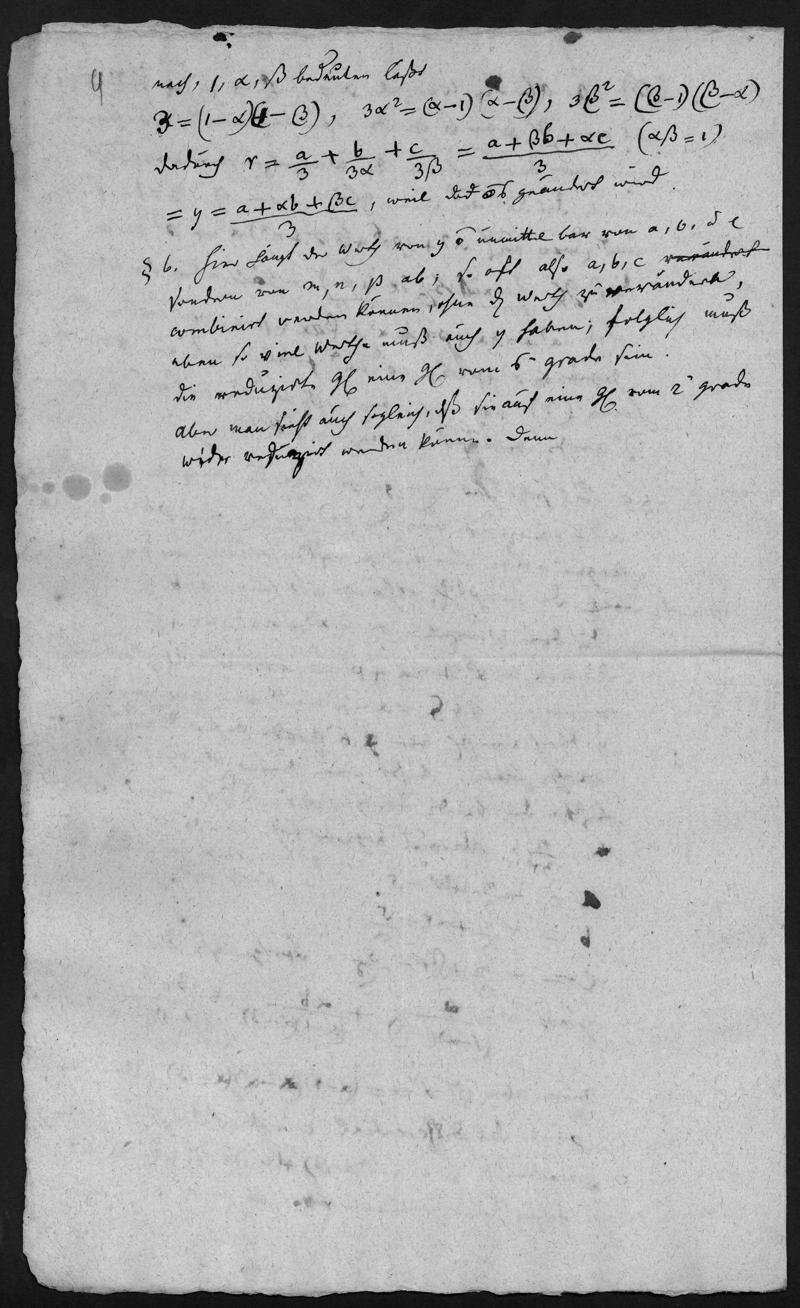 9
nach, 1, α, β bedeuten lasse
3 = (1-α)(1-β), 3α² = (α-1)(α-β), 3β² = (β-1)(β-α)
dadurch r = a/3 + b/3α + c/3β = (a+βb+αc)/3 (αβ=1)
= y = (a+αb+βc)/3, weil geändert wird.
§ 6. Hier hängt der Werth von y unmittelbar von a, b, c
sondern von m, n, p ab; so oft also a, b, c verändert
combinirt werden können, ohne Werth zu verändern,
eben so viel Werthe muß auch y haben; folglich muß
die reduzirte Gl eine Gl vom 6 grade sein.
Aber man sieht auch sogleich, dß sie auf eine Gl. vom 2 grade
wider reduzirt werden könne. Denn